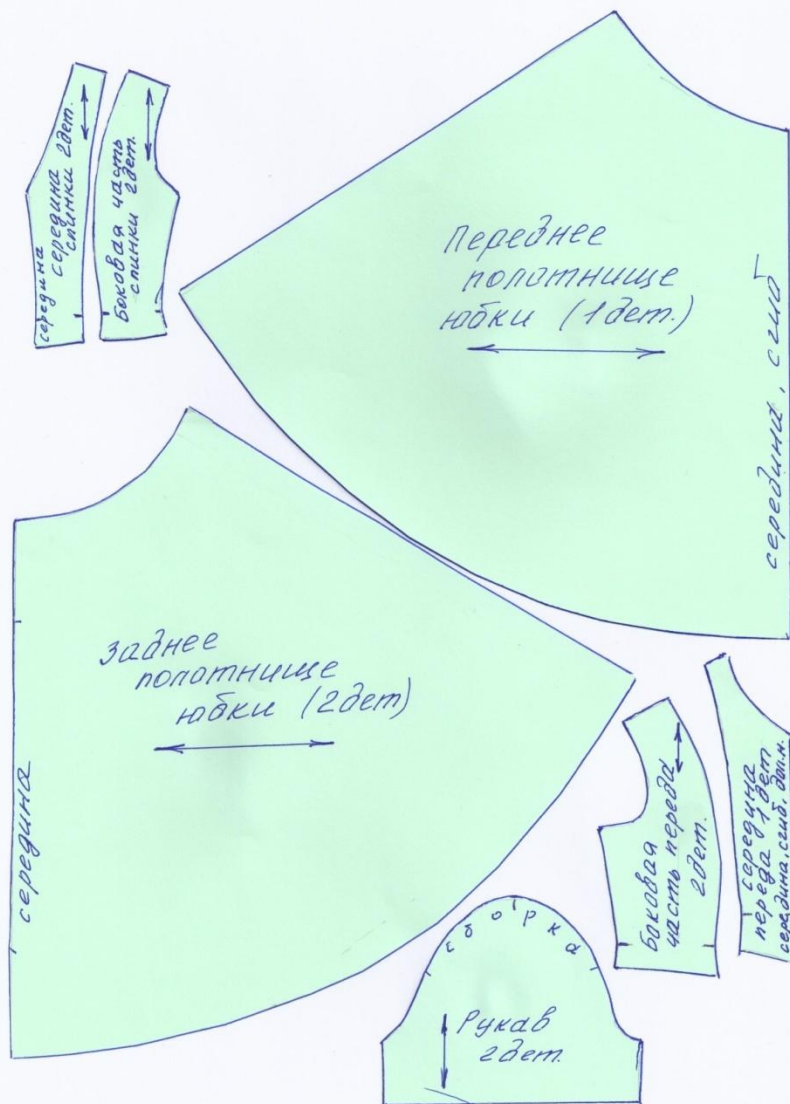 середина
середина
спинки 2дет.
Боковая часть
спинки 2дет.
Переднее
полотнище
юбки (1дет.)
середина, сгиб
Заднее
полотнище
юбки (2дет)
середина
Боковая
часть переда
2дет.
середина
переда 1дет.
середина, сгиб. дол.н.
сборка
Рукав
2дет.